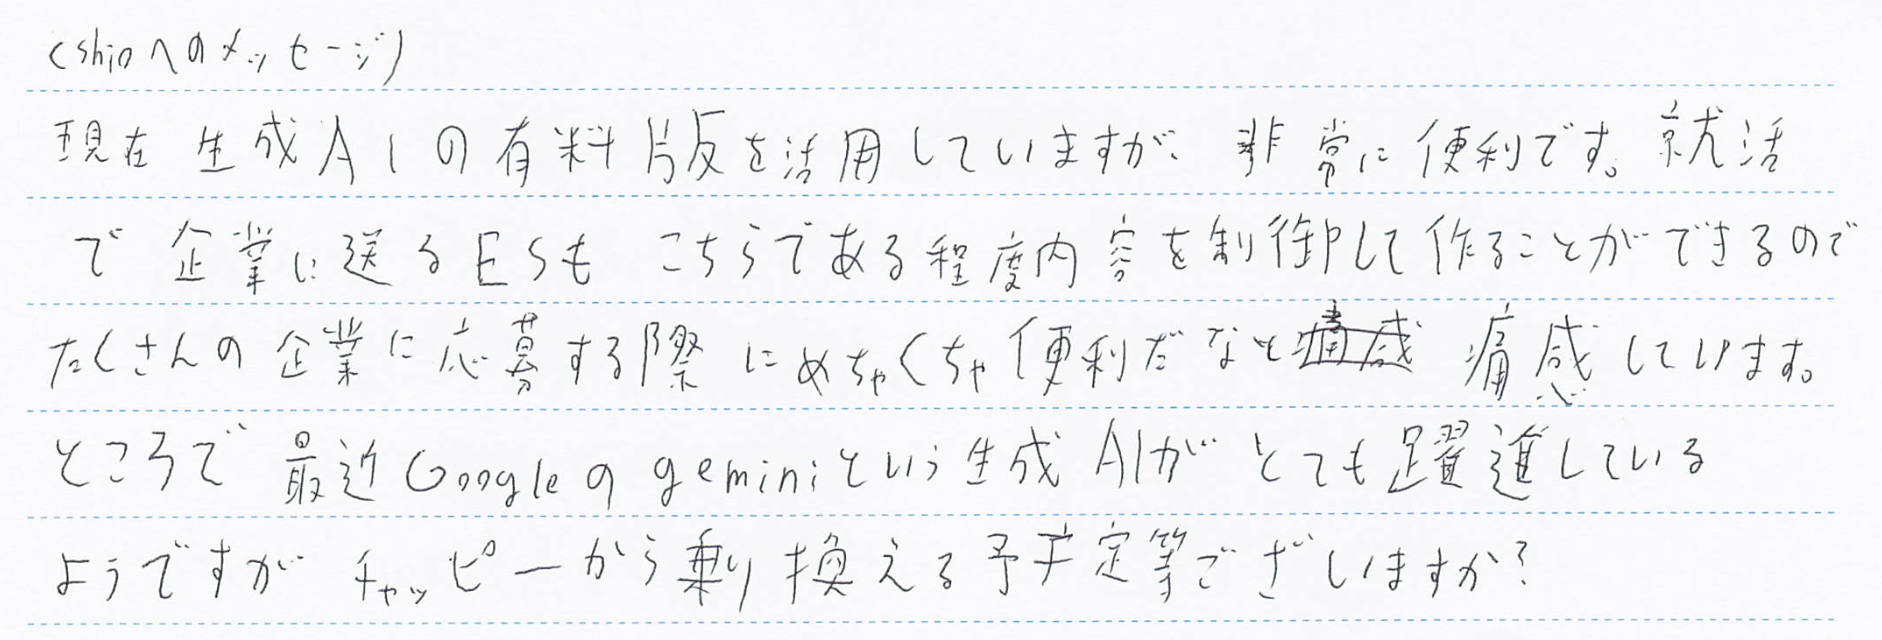 (shioへのメッセージ)
現在 生成AIの有料版を活用していますが、非常に便利です。就活
で企業に送るESも こちらである程度内容を制御して作ることができるので
たくさんの企業に応募する際にめちゃくちゃ便利だなと 痛感しています。
ところで 最近Googleのgeminiという生成AIがとても躍進している
ようですが チャッピーから乗り換える予定等ございますか?